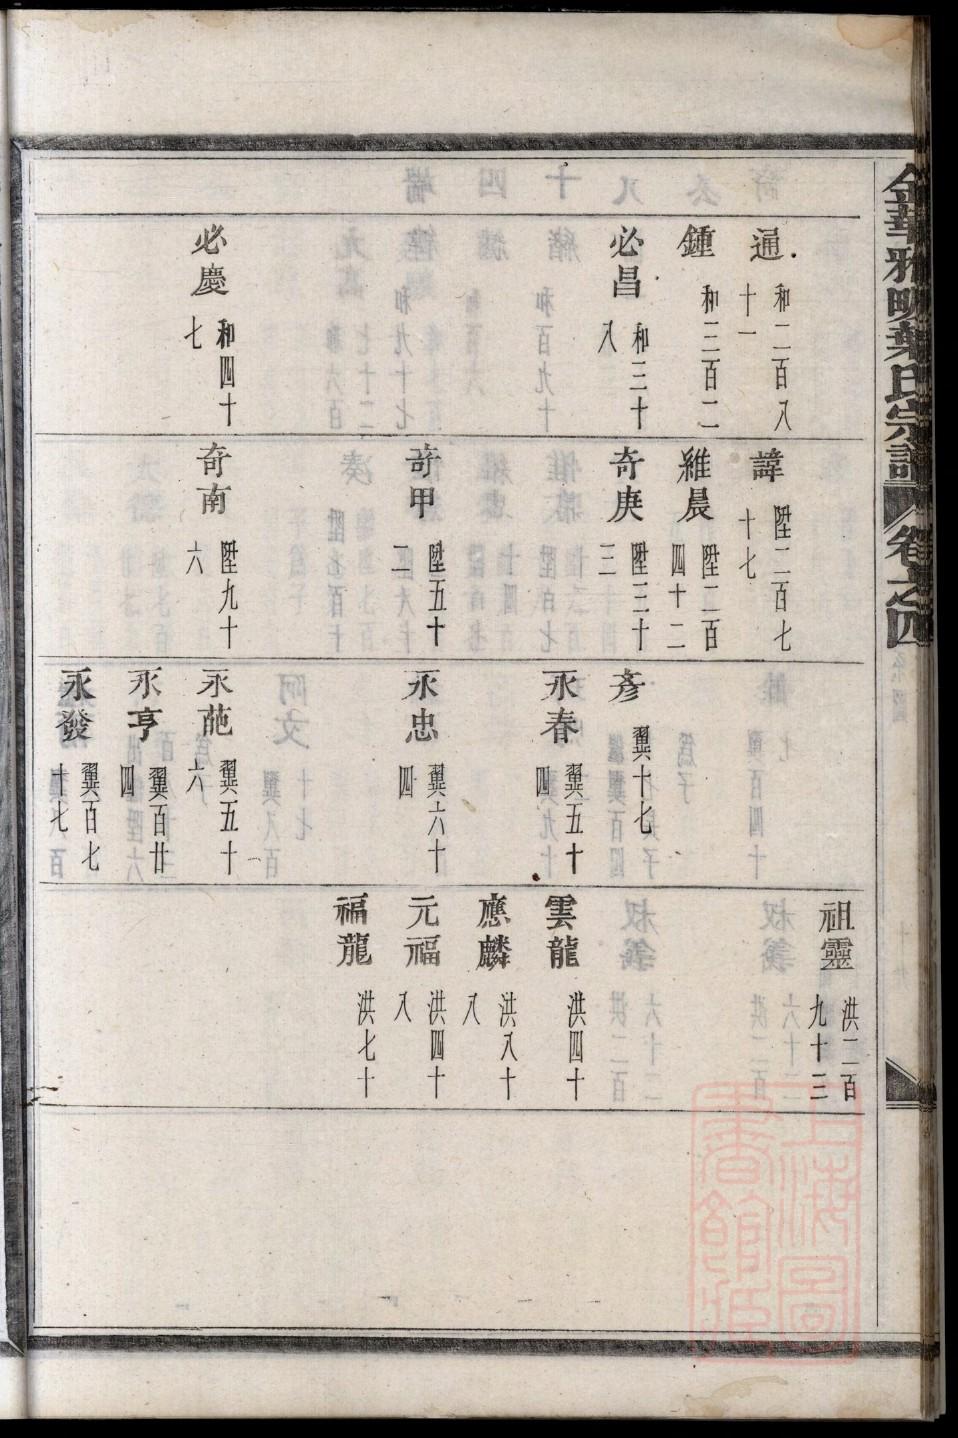 金華雅畈葉氏宗譜 卷之四
通 和二百八十一
鍾 和三百二
必昌 和三十八
必慶 和四十七
諱 陞二百七十七
維晨 陞二百四十二
奇庚 陞三十三
奇甲 陞五十二
奇南 陞九十六
彥 翼十七
永春 翼五十四
永忠 翼六十四
永葩 翼五十六
永亨 翼百廿四
永發 翼百七十七
祖靈 洪二百九十三
雲龍 洪四十
應麟 洪八十八
元福 洪四十八
福龍 洪七十
上海圖書館藏